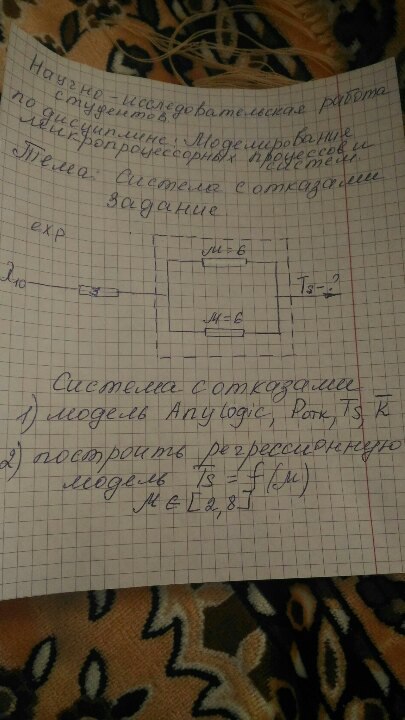 Научно-исследовательская работа
студентов
по дисциплине: Моделирование
микропроцессорных процессов и
систем
Тема: Система с отказами
Задание
exp
λ10
3
M=6
M=6
Ts-?
Система с отказами
1) модель Anylogic, Pотк, T̅s, K̅
2) построить регрессионную
модель T̅s = f(M)
M ∈ [2,8]